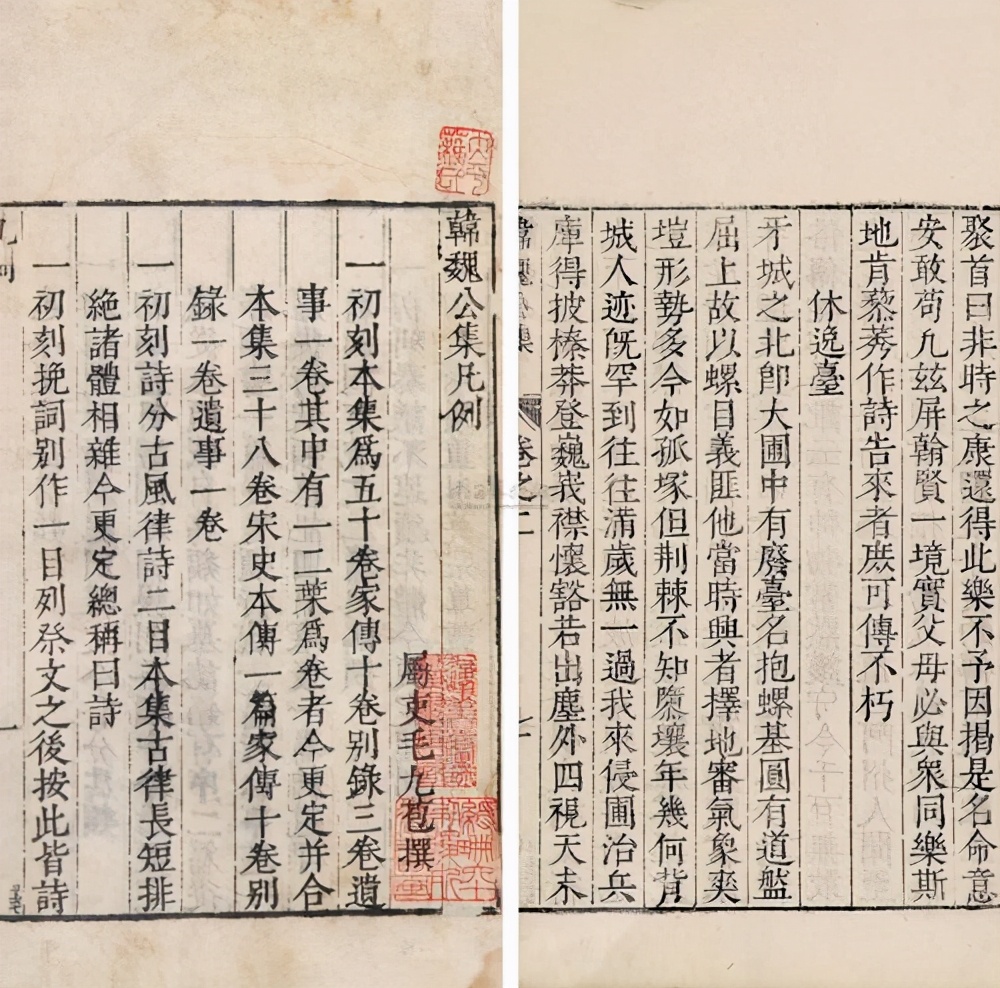 韓魏公集凡例
屬吏毛九苞撰
一初刻本集爲五十卷家傳十卷別錄三卷遺
事一卷其中有一二葉爲卷者今更定并合
本集三十八卷宋史本傳一篇家傳十卷別
錄一卷遺事一卷
一初刻詩分古風律詩二目本集古律長短排
絶諸體相雜今更定總稱曰詩
一初刻挽詞別作一目列祭文之後按此皆詩
凡例 一
聚首曰非時之康還得此樂不予因揭是名命意
安敢苟凡玆屏翰賢一境實父母必與衆同樂斯
地肯藜莠作詩告來者庶可傳不朽
休逸臺
牙城之北卽大圃中有廢臺名抱螺基圓有道盤
屈上故以螺目義匪他當時興者擇地審氣象爽
塏形勢多今如孤塚但荆棘不知隳壞年幾何背
城人迹旣罕到往往滿歲無一過我來侵圃治兵
庫得披榛莽登巍峩襟懷豁若出塵外四視天末
韓魏公集 卷之二